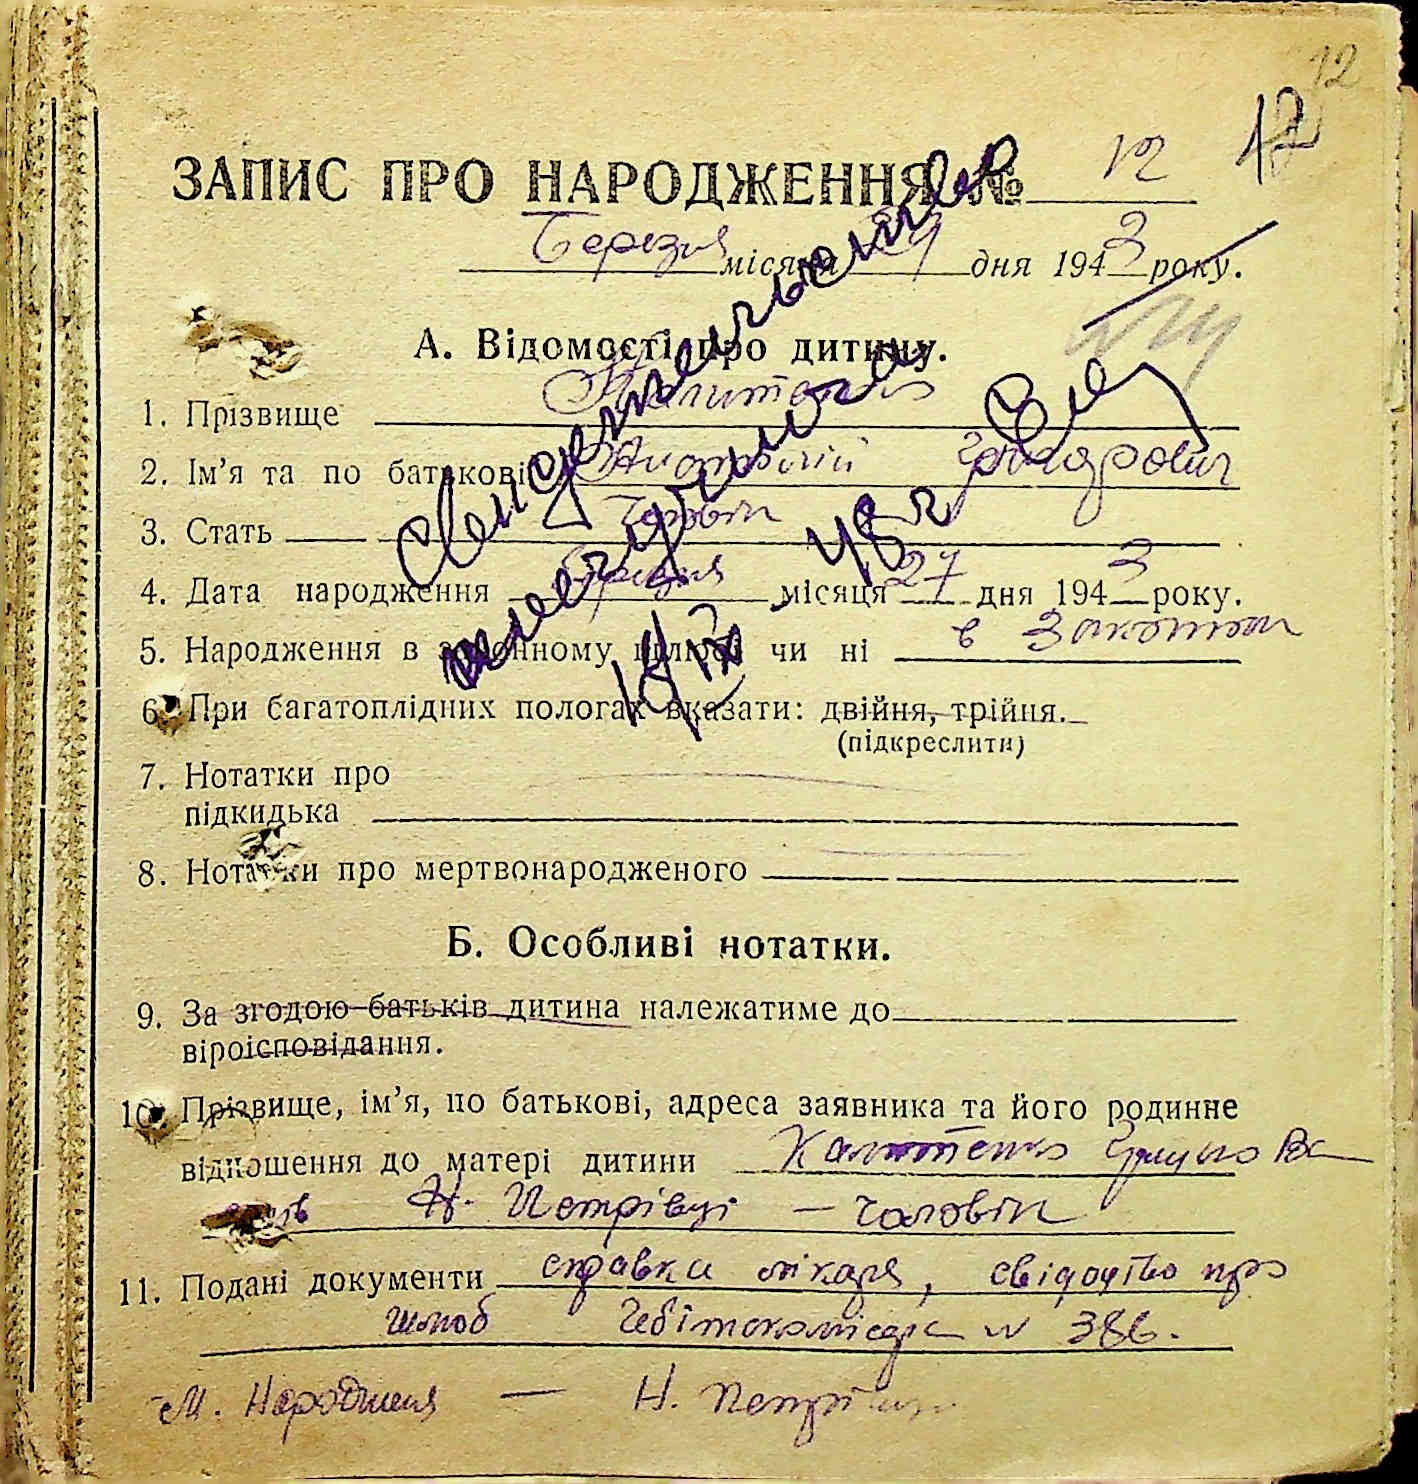 12
12
ЗАПИС ПРО НАРОДЖЕННЯ № 12
Березня місяця 29 дня 1943 року.
А. Відомості про дитину.
1. Прізвище
2. Ім’я та по батькові Анатолій
3. Стать Чоловік
4. Дата народження Березня місяця 27 дня 1943 року.
5. Народження в законному шлюбі чи ні в законном
6. При багатоплідних пологах вказати: двійня, трійня.
(підкреслити)
7. Нотатки про
підкидька
8. Нотатки про мертвонародженого
Б. Особливі нотатки.
9. За згодою батьків дитина належатиме до
віроісповідання.
10. Прізвище, ім’я, по батькові, адреса заявника та його родинне
відношення до матері дитини
Н. Петрівці — чоловік
11. Подані документи справка лікаря, свідоцтво про
шлюб Гебітскомісара № 386.
М. Народження — Н. Петрівці
Свидетельство
получила